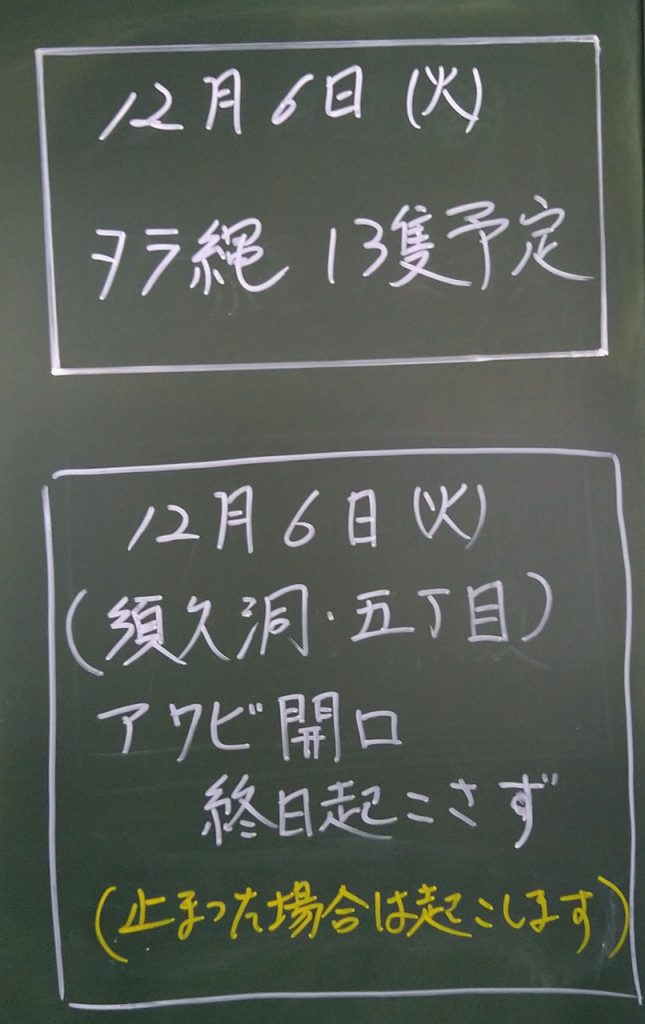 12月6日(火)
タラ縄 13隻予定
12月6日(火)
(須久洞・五丁目)
アワビ開口
終日起こさず
(止まった場合は起こします)